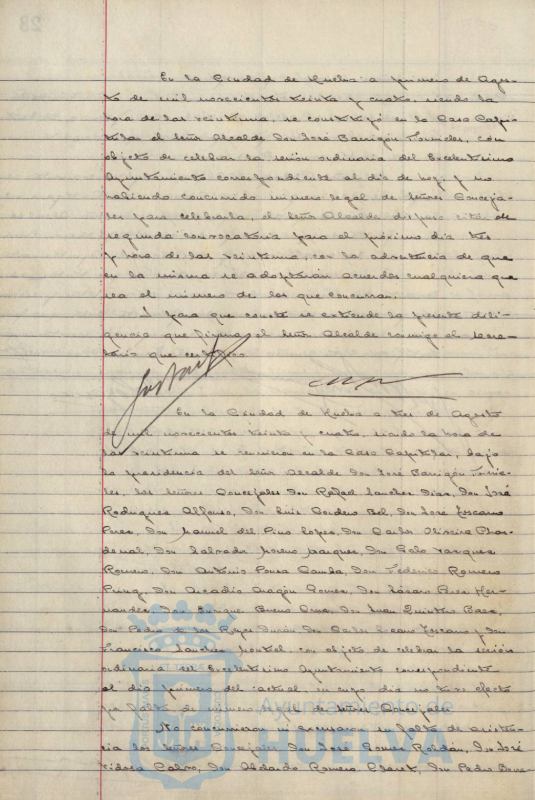 En la Ciudad de Huelva a primero de Agos-
to de mil novecientos treinta y cuatro, siendo la
hora de las veintiuna, se constituyó en la Casa Capi-
tular el Señor Alcalde Don José Barrigón Fornieles, con
objeto de celebrar la sesión ordinaria del Excelentísimo
Ayuntamiento correspondiente al día de hoy, y no
habiendo concurrido número legal de señores Conceja-
les para celebrarla, el Señor Alcalde dispuso citar de
segunda convocatoria para el próximo día tres
y hora de las veintiuna, con la advertencia de que
en la misma se adoptarán acuerdos cualquiera que
sea el número de los que concurran.
Y para que conste se extiende la presente dili-
gencia que firma el Señor Alcalde conmigo el Secre-
tario que certifico.
En la Ciudad de Huelva a tres de Agosto
de mil novecientos treinta y cuatro, siendo la hora de
las veintiuna se reunieron en la Casa Capitular, bajo
la presidencia del Señor Alcalde Don José Barrigón Fornie-
les, los señores Concejales Don Rafael Sanchez Diaz, Don José
Rodriguez Alfonso, Don Luis Cordero Bel, Don José Toscano
Perez, Don Manuel del Pino Lopez, Don Carlos Oliveira
Don Salvador Moreno Marquez, Don Vazquez
Romero, Don Antonio Ponce Don Federico Romero
Don Arcadio Aragón Gomez, Don Lázaro Perez Her-
nandez, Don Enrique Bueno Don Juan Quintero Baez,
Don Pedro de los Reyes Don Toscano y Don
Francisco Sanchez con objeto de celebrar la sesión
ordinaria del Excelentísimo Ayuntamiento correspondiente
al día primero del actual, en cuyo día no tuvo efecto
por falta de número legal de señores Concejales.
No concurrieron ni excusaron su falta de asisten-
cia los señores Concejales Don José Gomez Roldán, Don José
Don Abelardo Romero Claret, Don Pedro
Ayuntamiento de
HUELVA